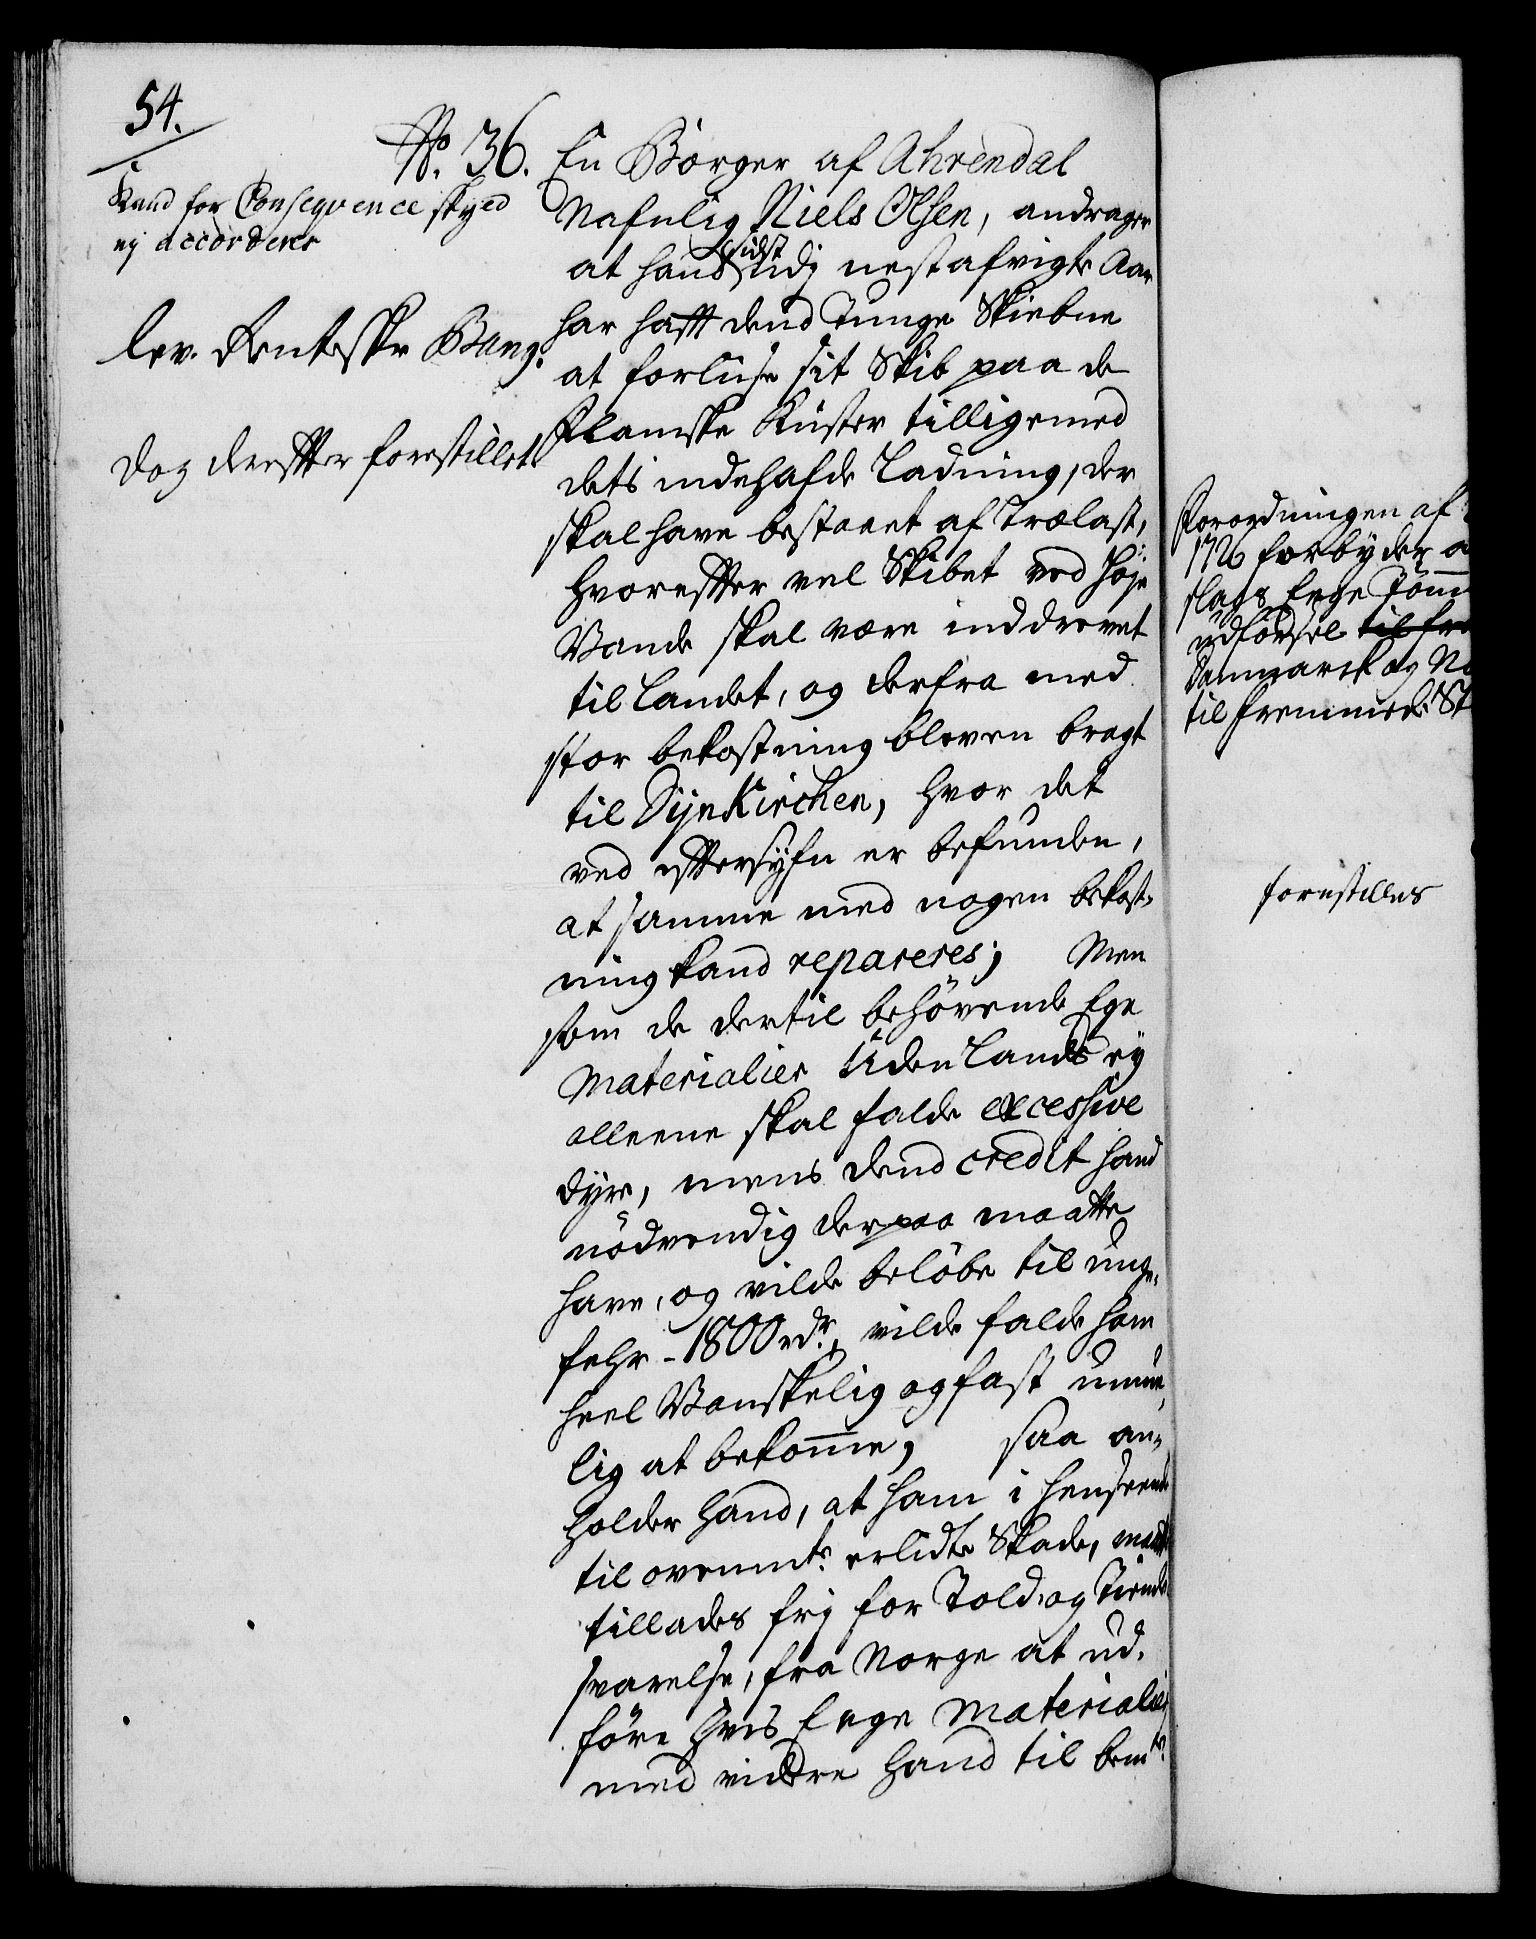 54.
No. 36.
Kand for Conseqvence skyld
ej accorderes
lev. Renteskr Bang.
dog derefter forestillet
En Borger af Ahrendal
Nafnlig Niels Olsen, andrager
at hand sidst udj nestafvigte Aar
har hafft dend Tunge Skiebne
at forliise sit Skib paa de
Flamske Kuster tilligemed
dets indehafde Ladning, der
skal have bestaaet af Trælast,
hvorefter vel Skibet ved høje
Vande skal være inddrevet
til Landet, og derfra med
stor bekostning bleven bragt
til Dynkirchen, hvor det
ved eftersyfn er befunden,
at samme med nogen bekost-
ning kand repareres; Men
som de dertil behövende Ege
Materialier uden Lands ej
alleene skal falde excessive
dyre, mens dend credit hand
nödvendig derpaa maatte
have, og vilde belöbe til unge-
fehr - 1800 rdr, vilde falde ham
heel Vanskelig og fast umue-
lig at bekomme; saa an-
holder hand, at ham i henseende
til ovenmte erlidte Skade, maatte
tillades frj for Told og Tiende
svarelse, fra Norge at ud-
före hvis Eege Materialier
med videre hand til bemte
Forordningen af
1726 forbyder a
slags Eege Tömm
udförsel til fre
Danmarck og No
til fremmede St
forestilles